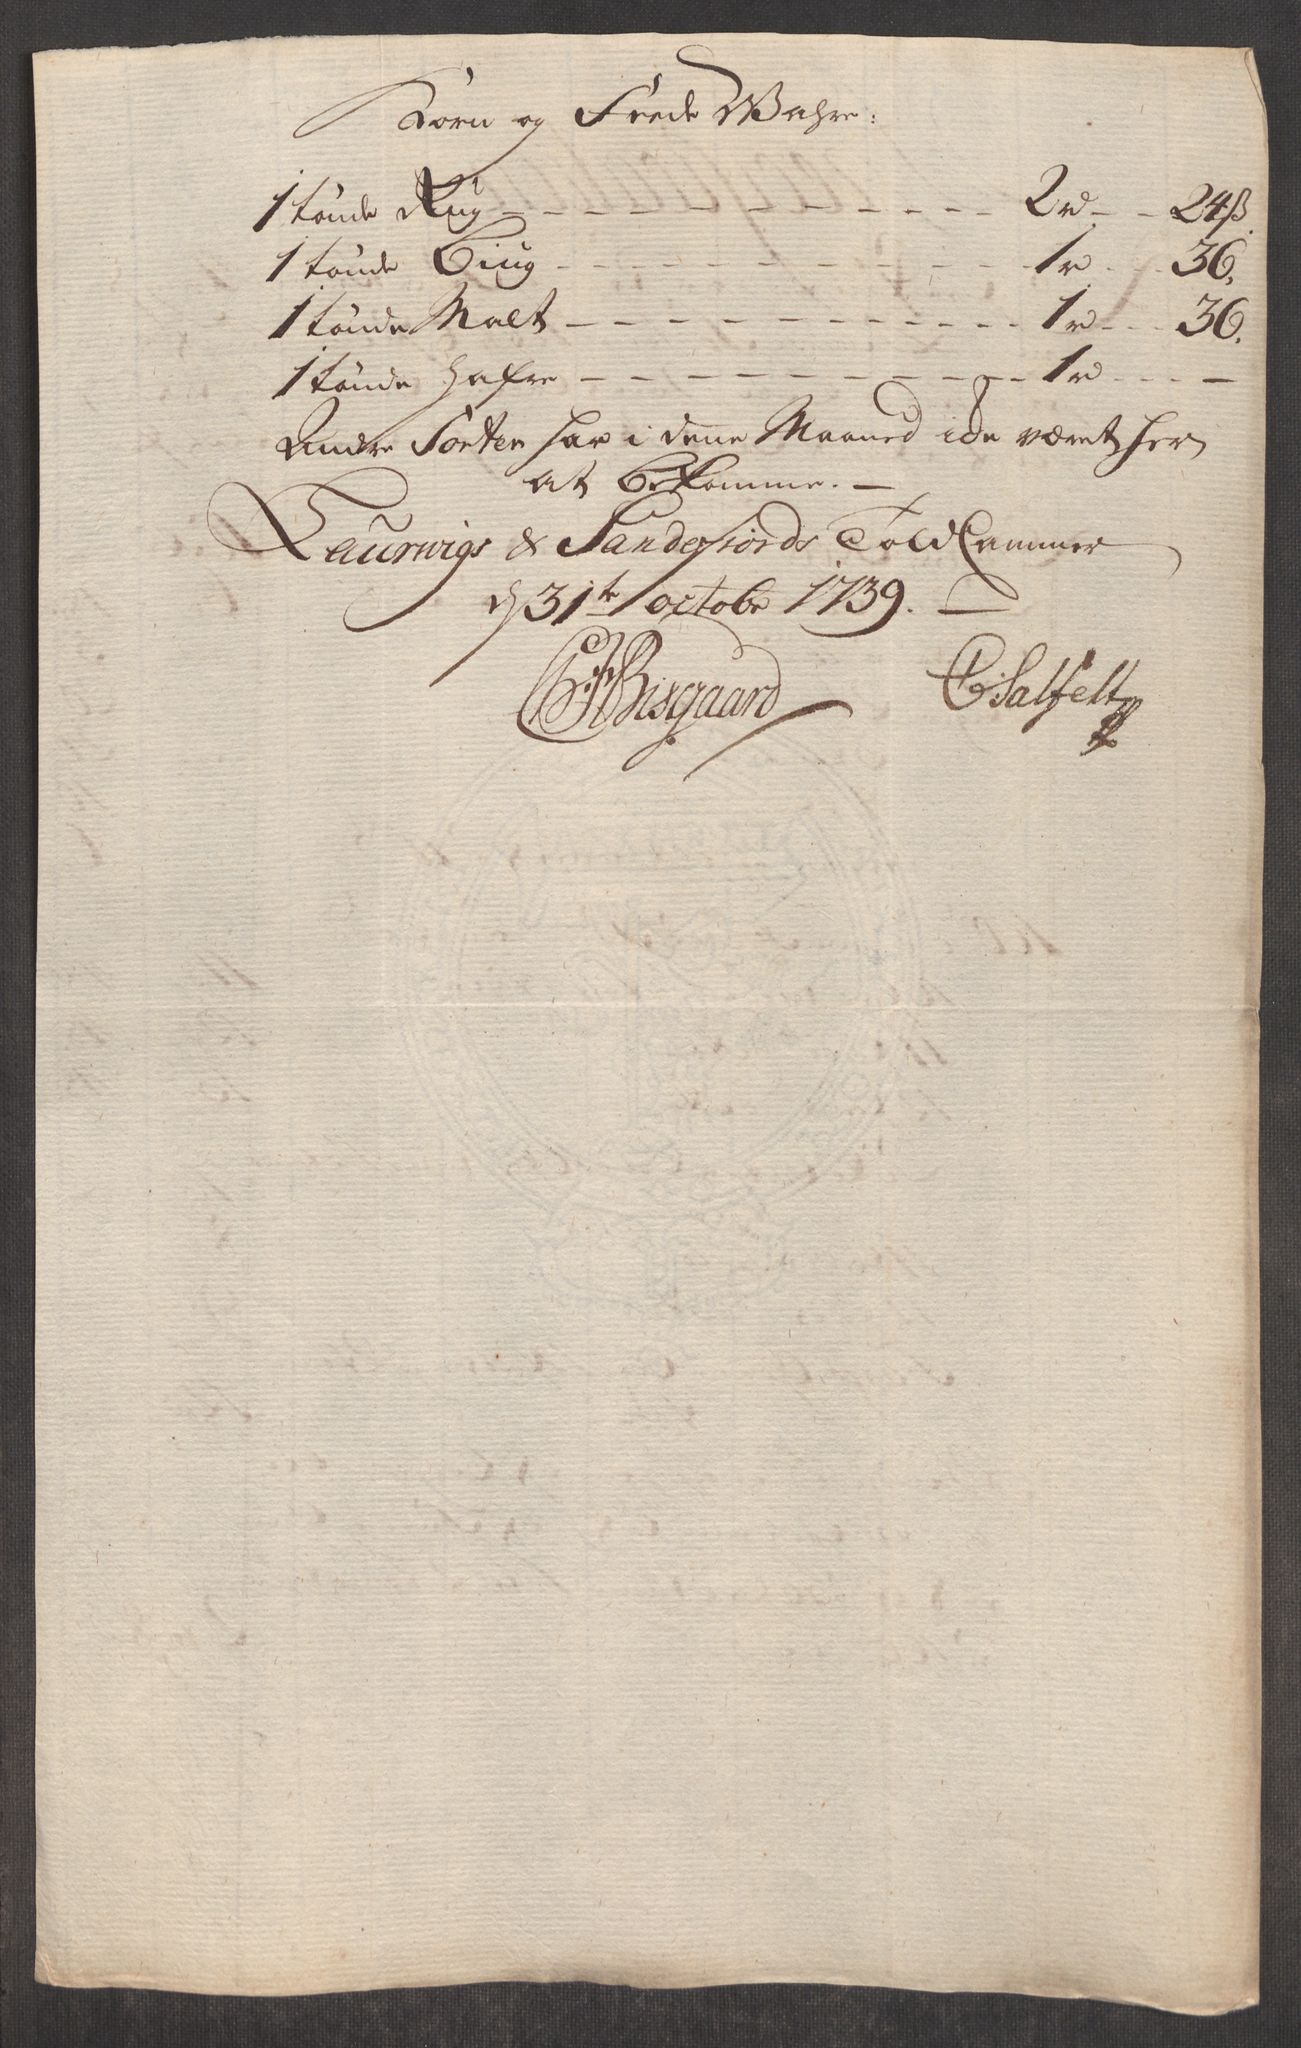 Korn og Feede Wahre:
1 tønde Rug - - - - - - - - - - - - 2 rd - - 24 ß.
1 tønde Biug - - - - - - - - - - - - 1 r - - 36.
1 tønde Malt - - - - - - - - - - - - 1 r - - 36.
1 tønde Hafre - - - - - - - - - - - - 1 r - - -
Andre Sorter har i dene Maaned icke været her
at bekomme. -
Laurwigs & Sandefiords Told Cammer
d 31te octobr 1739. -
Bisgaard CSalfelt